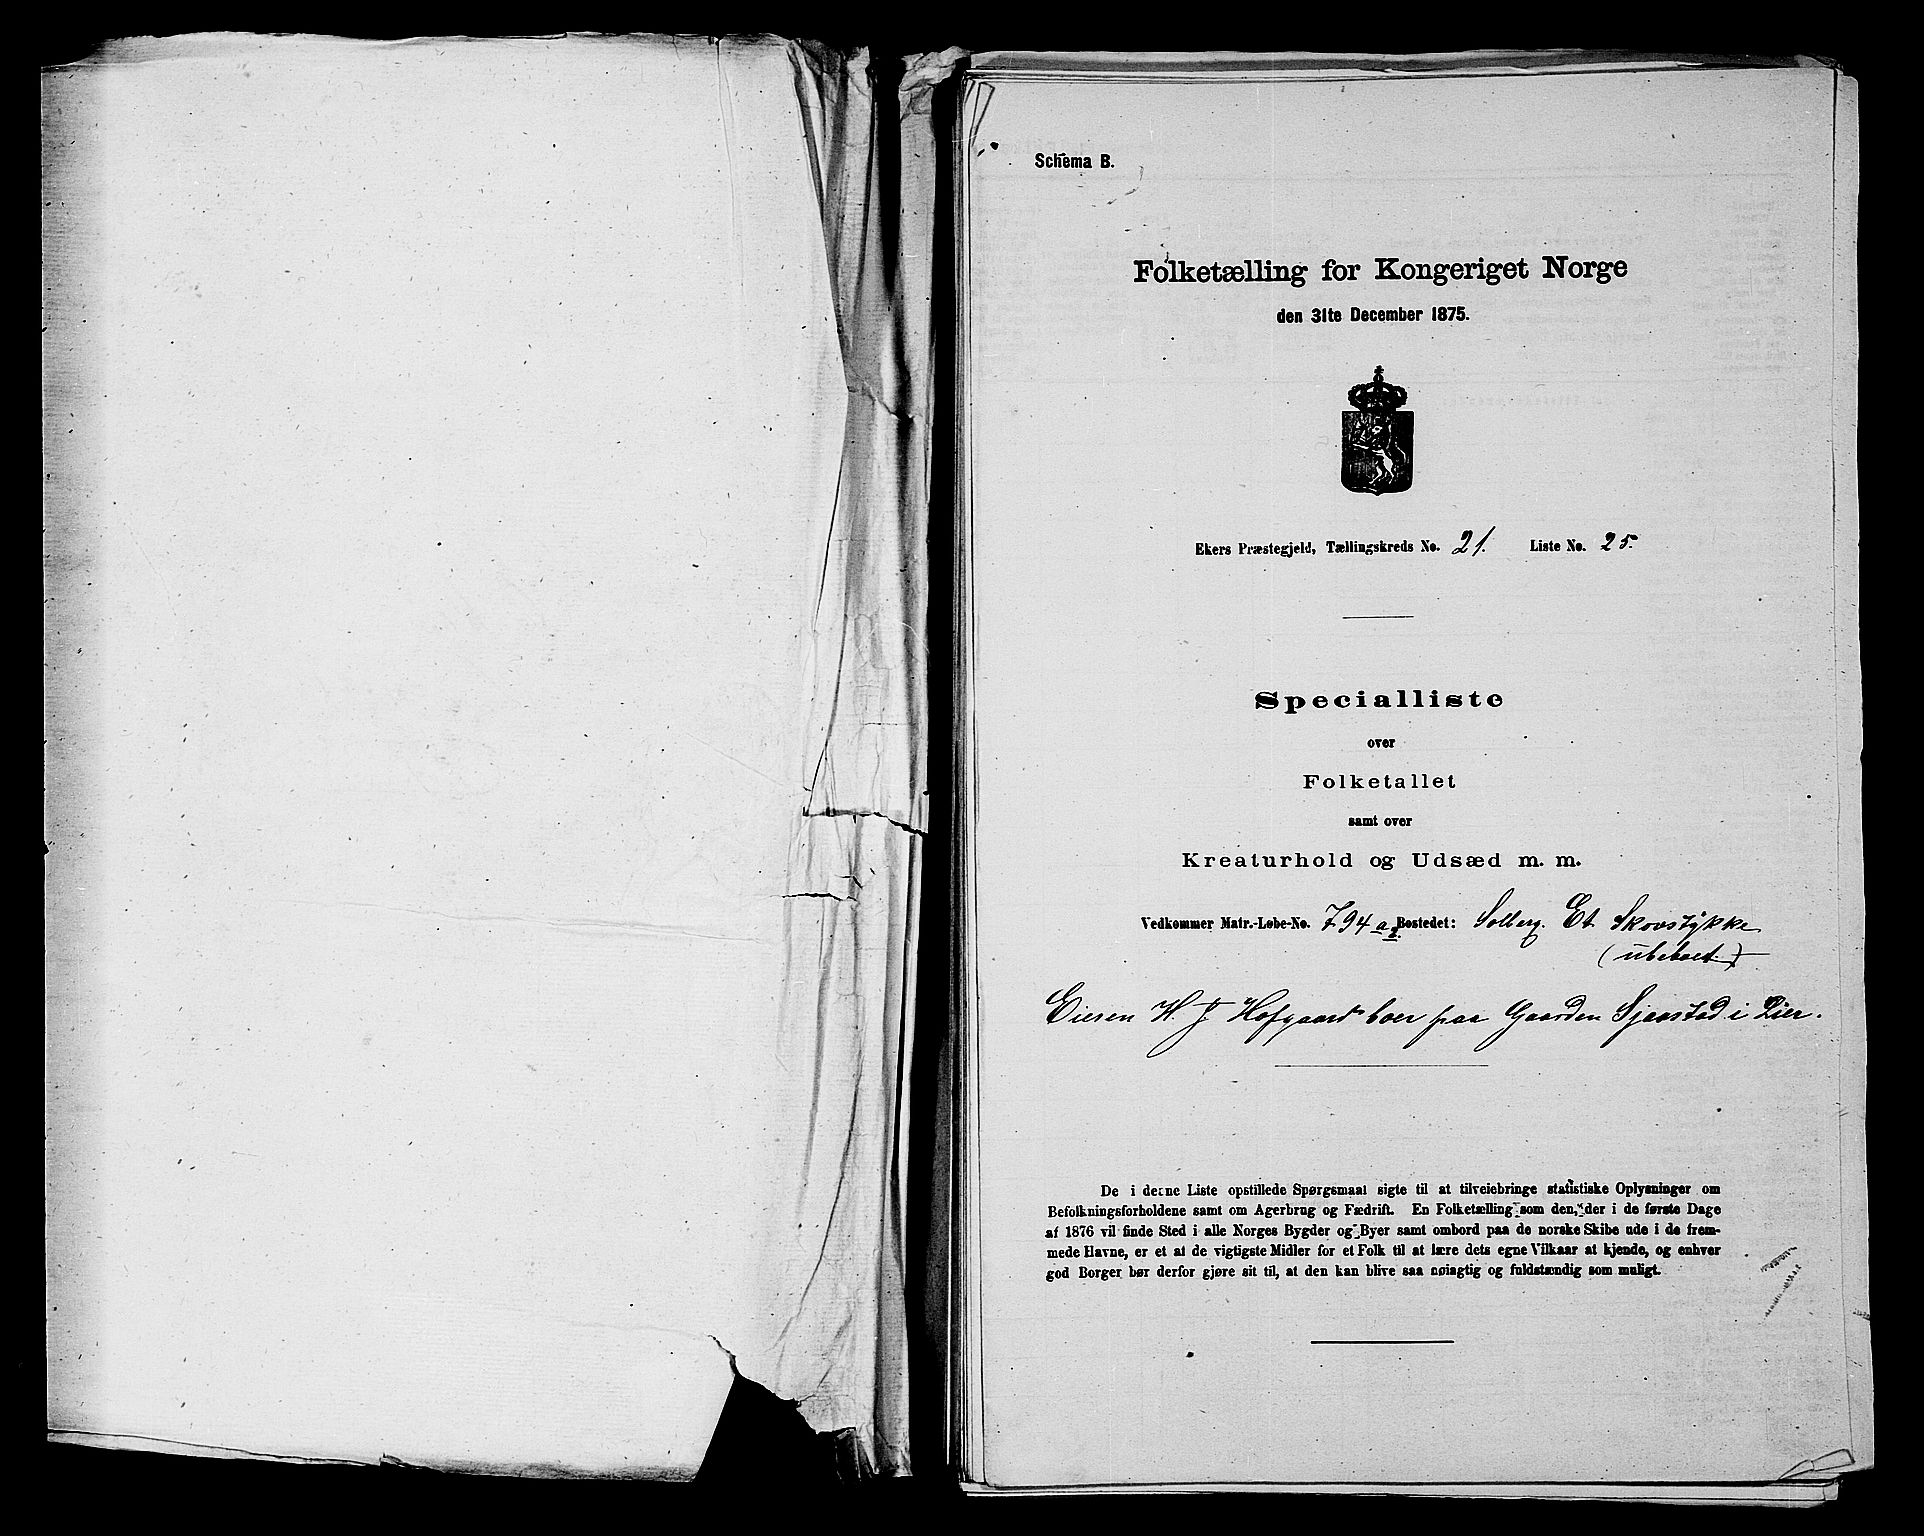 Schema B.
Folketælling for Kongeriget Norge
den 31te December 1875.
Ekers Præstegjeld, Tællingskreds No. 21. Liste No. 25.
Specialliste
over
Folketallet
samt over
Kreaturhold og Udsæd m. m.
Vedkommer Matr.-Løbe-No. 794 a Bostedet: Solberg. Et Skovstykke
(ubeboet.)
Eieren H. J. Hofgaard boer paa Gaarden i Lier.
De i denne Liste opstillede Spørgsmaal sigte til at tilveiebringe statistiske Oplysninger om
Befolkningsforholdene samt om Agerbrug og Fædrift. En Folketælling som den, der i de første Dage
af 1876 vil finde Sted i alle Norges Bygder og Byer samt ombord paa de norske Skibe ude i de frem-
mede Havne, er et af de vigtigste Midler for et Folk til at lære dets egne Vilkaar at kjende, og enhver
god Borger bør derfor gjøre sit til, at den kan blive saa nøiagtig og fuldstændig som muligt.